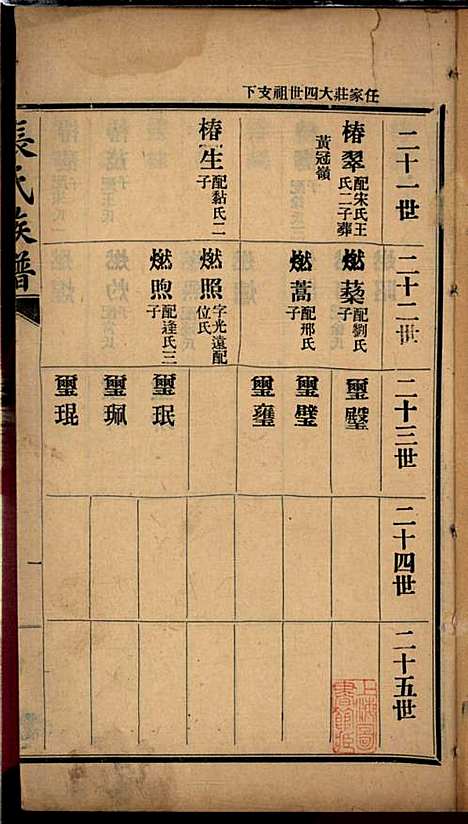 任家莊大四世祖支下
二十一世
二十二世
二十三世
二十四世
二十五世
椿翠 配宋氏王氏二子葬黃冠嶺
燃蓁 配劉氏
璽璧
燃蒿 配邢氏子
璽璧
璽甕
椿生 配黏氏二子
燃照 字光遠配位氏
燃煦 配逄氏三子
璽珉
璽珮
璽琨
張氏族譜
一